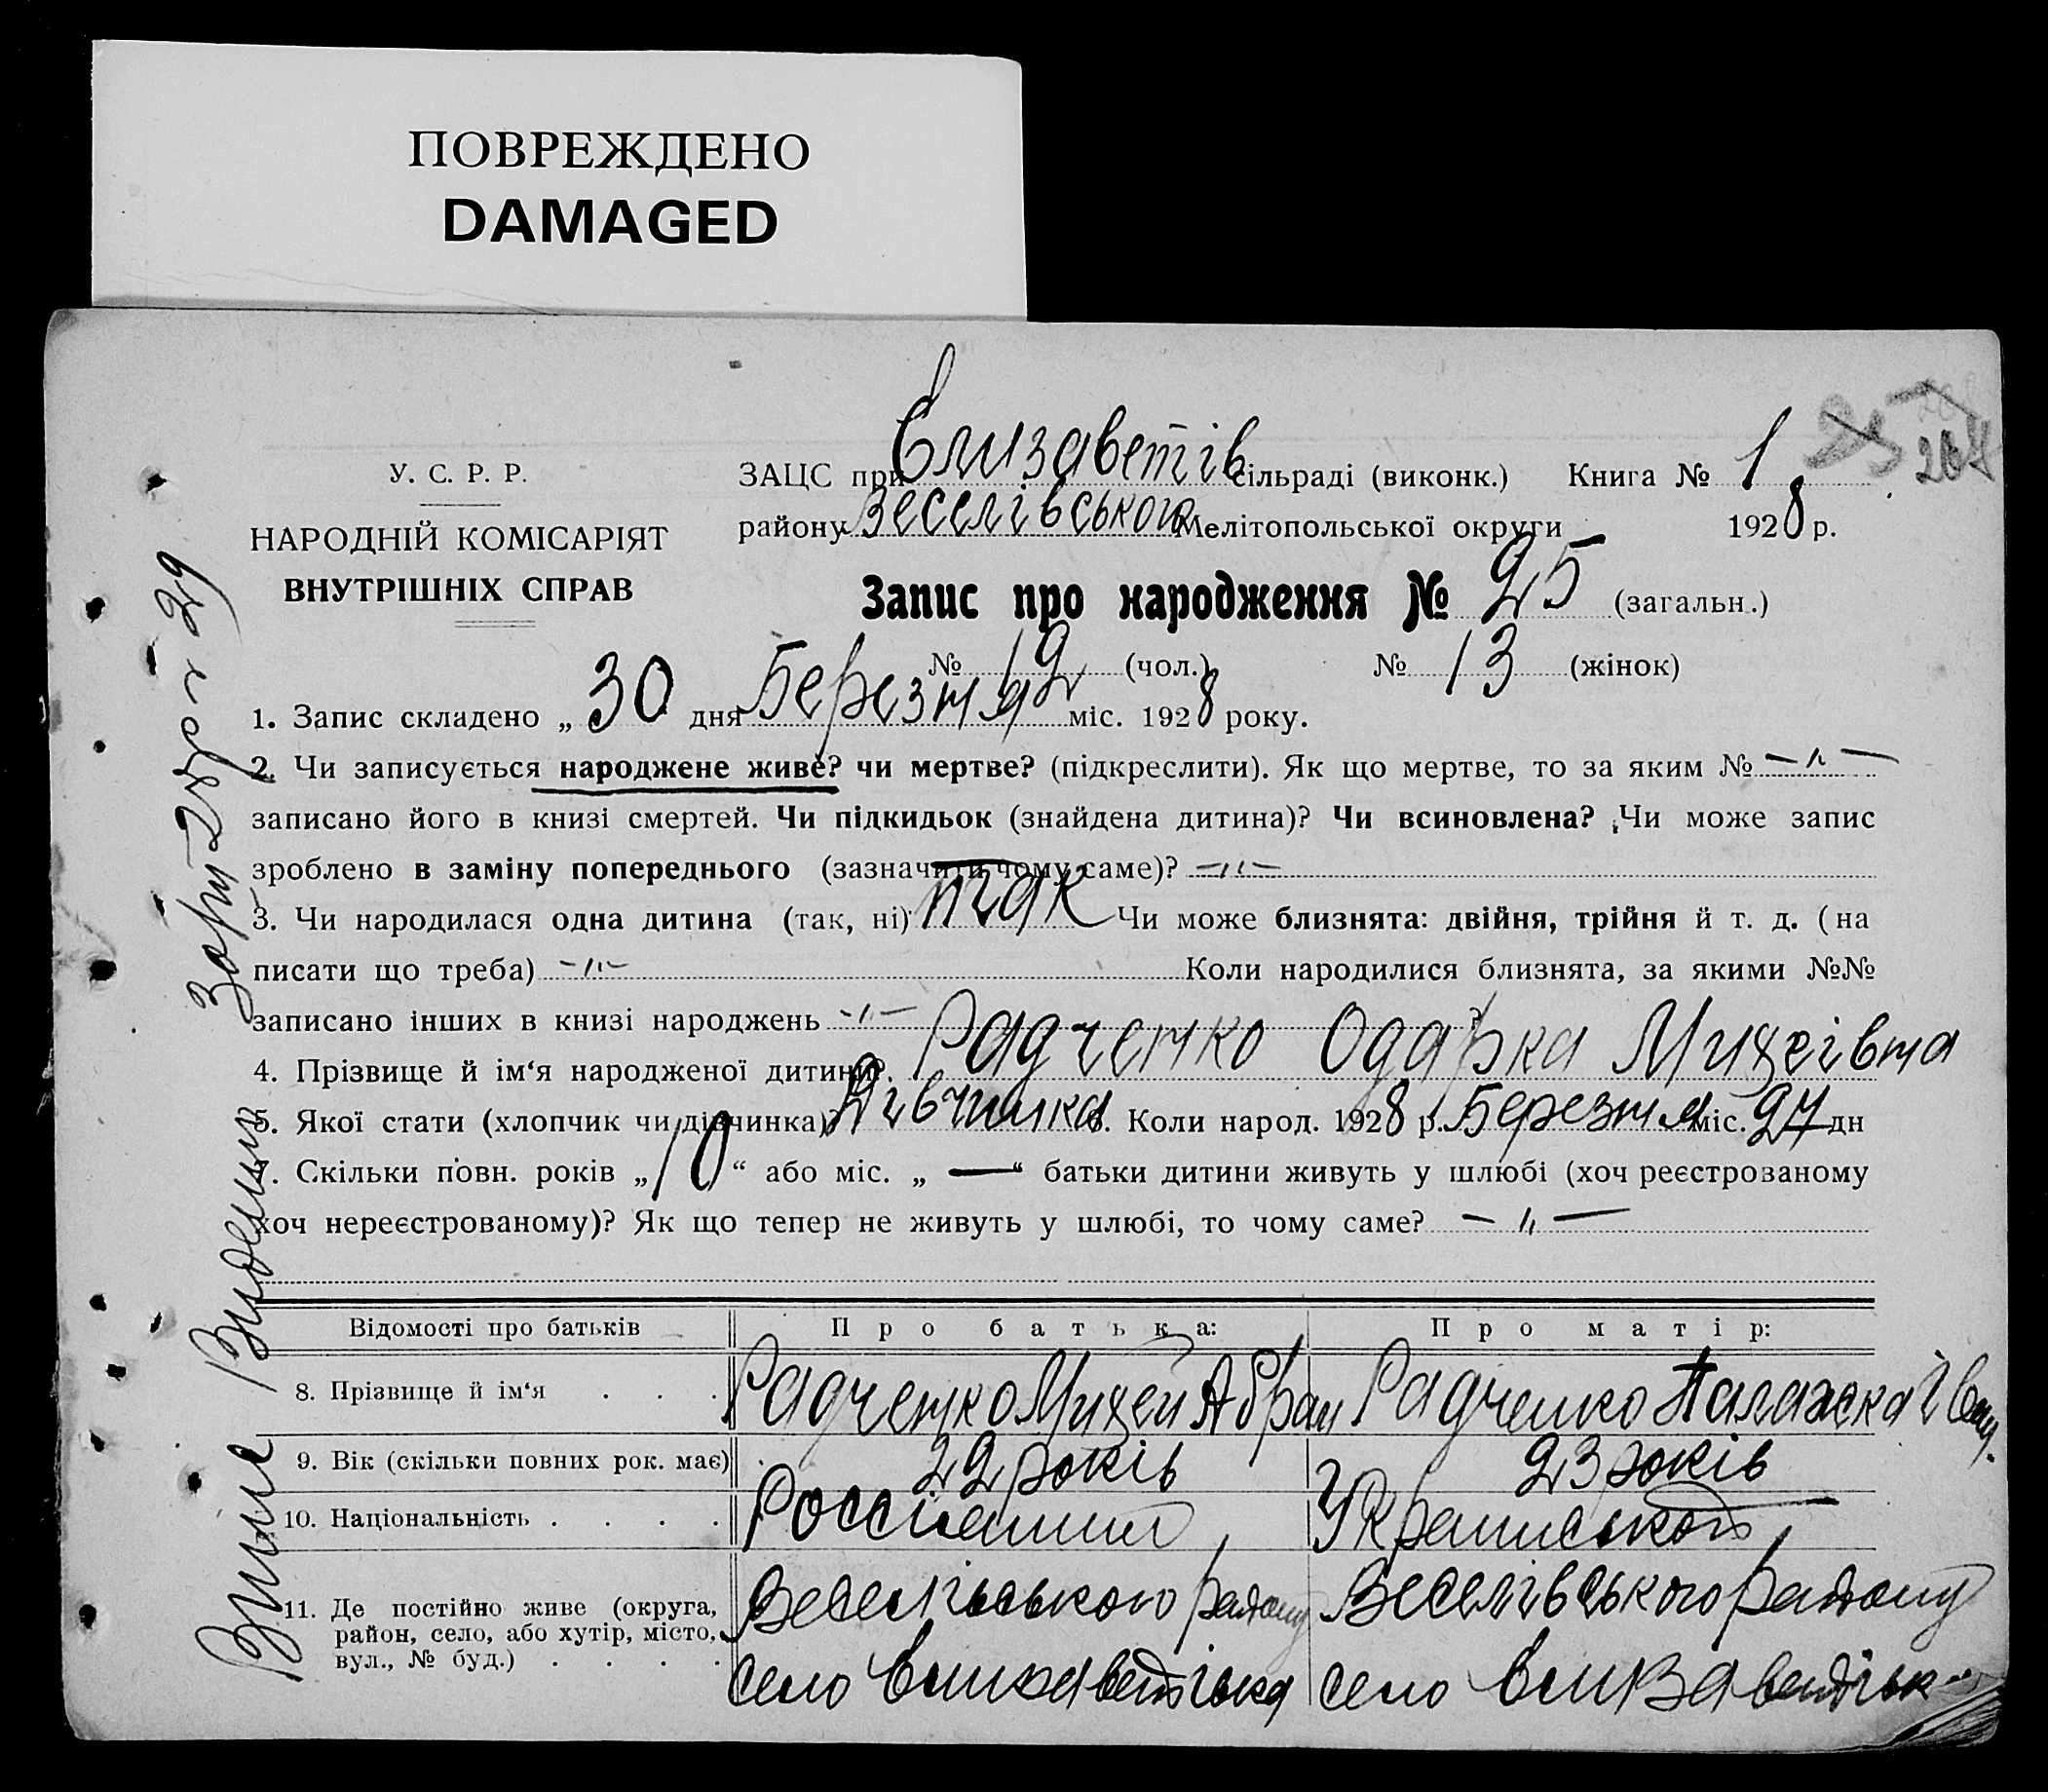 ПОВРЕЖДЕНО
DAMAGED
У. С. Р. Р.
НАРОДНІЙ КОМІСАРІЯТ
ВНУТРІШНІХ СПРАВ
ЗАЦС при Єлизаветів сільраді (виконк.) Книга № 1
району Веселівського Мелітопольської округи 1928 р.
Запис про народження № 25 (загальн.)
№ 12 (чол.) № 13 (жінок)
1. Запис складено „ 30 дня Березня міс. 1928 року.
2. Чи записується народжене живе? чи мертве? (підкреслити). Як що мертве, то за яким № — " —
записано його в книзі смертей. Чи підкидьок (знайдена дитина)? Чи всиновлена? Чи може запис
зроблено в заміну попереднього (зазначити чому саме)? —"—
3. Чи народилася одна дитина (так, ні) так Чи може близнята: двійня, трійня й т. д. (на
писати що треба) —"— Коли народилися близнята, за якими №№
записано інших в книзі народжень —"—
4. Прізвище й ім‘я народженої дитини? Радченко Одарка Михеівна
5. Якої стати (хлопчик чи дівчинка)? Дівчинка 6. Коли народ. 1928 р. Березня міс. 27 дн
7. Скільки повн. років „10“ або міс. „—“ батьки дитини живуть у шлюбі (хоч реєстрованому
хоч нереєстрованому)? Як що тепер не живуть у шлюбі, то чому саме? — " —
Відомості про батьків Про батька: Про матір:
8. Прізвище й ім‘я . . . Радченко Михей Абрам Радченко Палажка
9. Вік (скільки повних рок. має) 22 років 23 років
10. Національність . . . .
11. Де постійно живе (округа, район, село, або хутір, місто, вул., № буд.) . . . . Веселівського району Веселівського району
село Єлизаветівка село